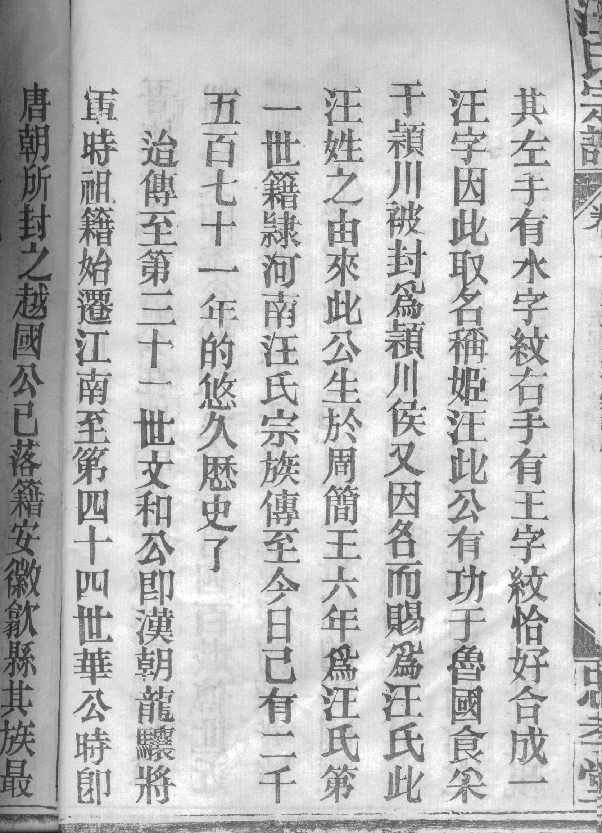 汪氏宗譜
卷
忠孝堂
其左手有水字紋右手有王字紋恰好合成一
汪字因此取名稱姬汪此公有功于魯國食采
于頴川被封爲頴川侯又因名而賜爲汪氏此
汪姓之由來此公生於周簡王六年爲汪氏第
一世籍隷河南汪氏宗族傳至今日已有二千
五百七十一年的悠久歷史了
迨傳至第三十一世文和公卽漢朝龍驤將
軍時祖籍始遷江南至第四十四世華公時卽
唐朝所封之越國公已落籍安徽歙縣其族最